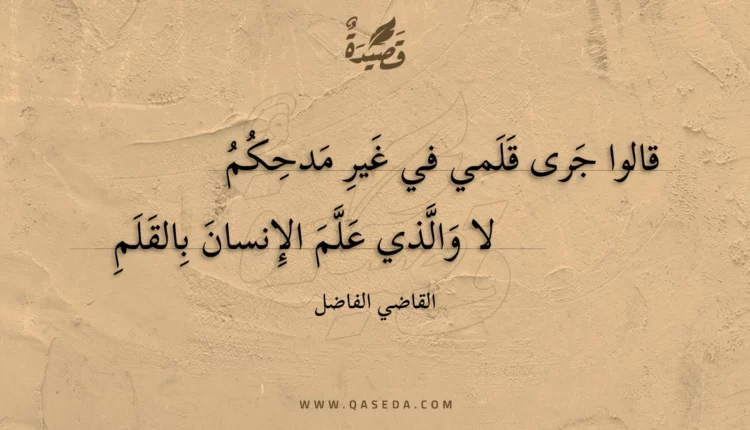 قَصِيدَةٌ
قالوا جَرى قَلَمي في غَيرِ مَدحِكُمُ
لا وَالَّذي عَلَّمَ الإِنسانَ بِالقَلَمِ
القاضي الفاضل
WWW.QASEDA.COM